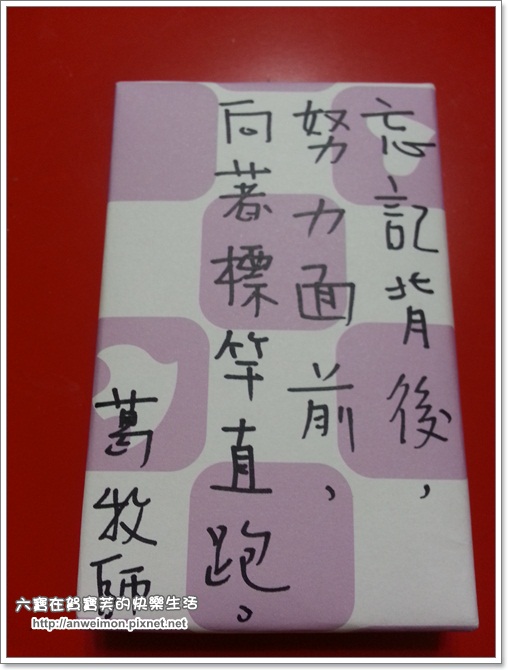 忘記背後，
努力面前、
向著標竿直跑。
葛牧師
六寶在賀寶芙的快樂生活
http://anweimon.pixnet.net